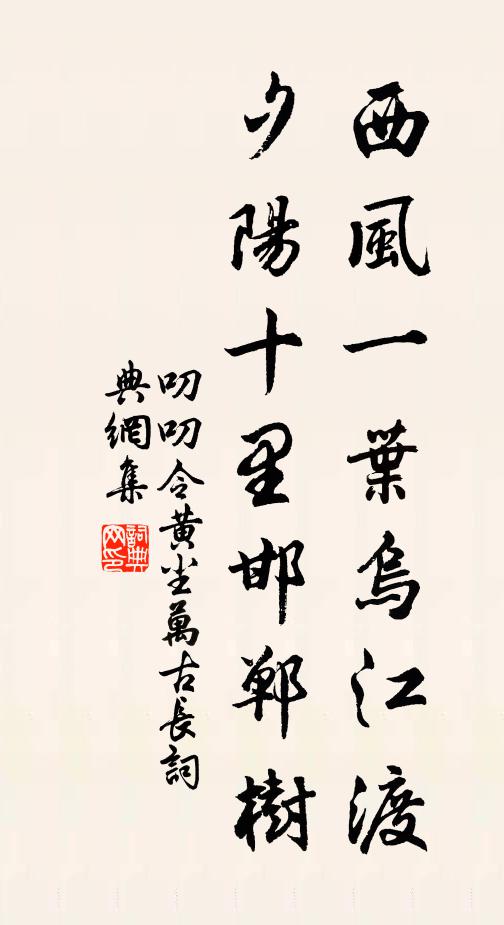 西風一葉烏江渡
夕陽十里邯鄲樹
叨叨令黃塵萬古長詞
典網集
詞典
網印